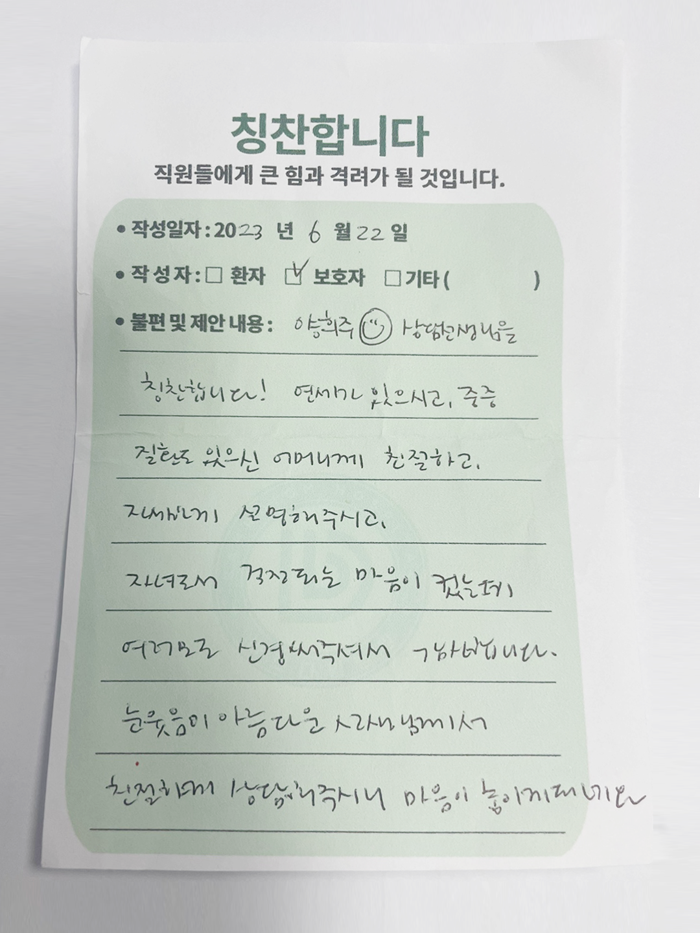 칭찬합니다
직원들에게 큰 힘과 격려가 될 것입니다.
• 작성일자 : 2023 년 6 월 22 일
• 작 성 자 : □ 환자 ☑ 보호자 □ 기타 ( )
• 불편 및 제안 내용 : 양희주 상담선생님을
칭찬합니다! 연세가 있으시고, 중증
질환도 있으신 어머니께 친절하고,
자세하게 설명해주시고,
자녀로서 걱정되는 마음이 컸는데,
여러모로 신경써주셔서 감사합니다.
눈웃음이 아름다운 선생님께서
친절하게 상담해주시니 마음이 놓이게되네요